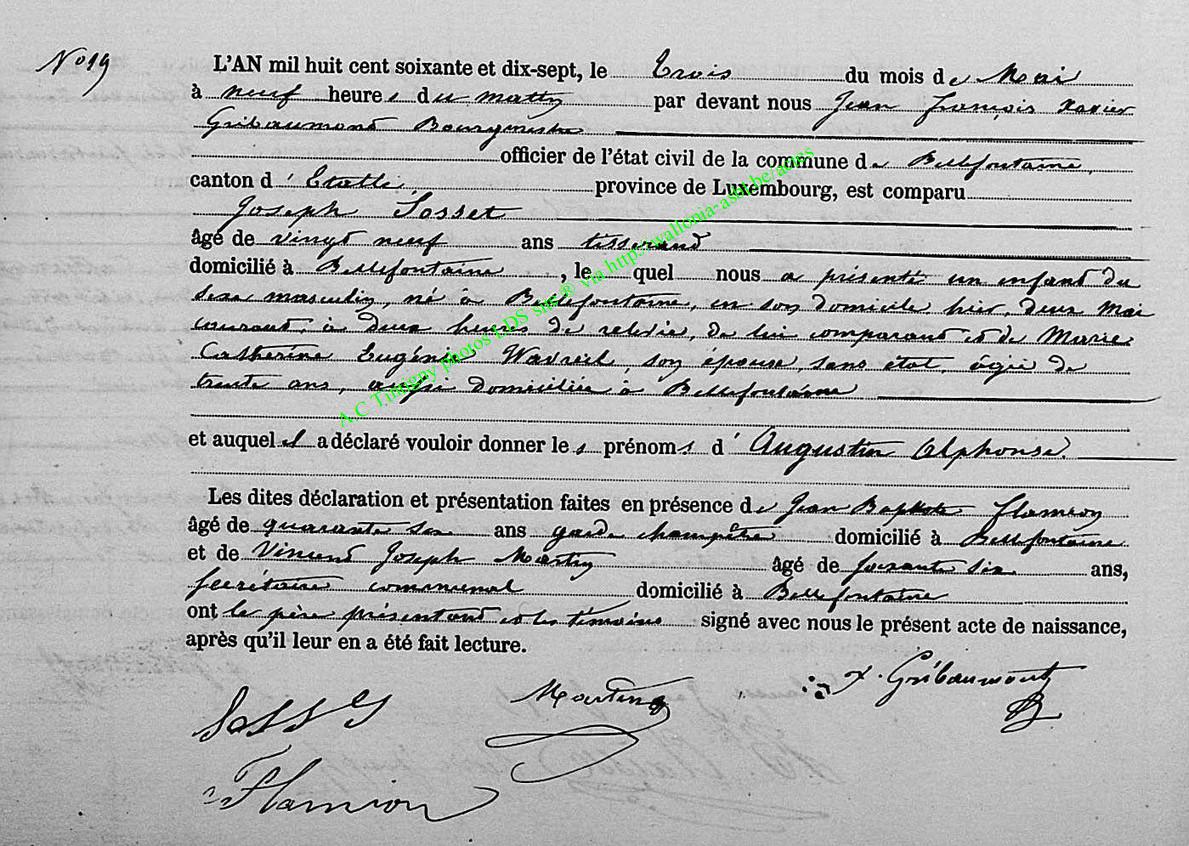 N° 19
L'AN mil huit cent soixante et dix-sept, le trois du mois de Mai
à neuf heures du matin par devant nous Jean François Xavier
Gribaumont Bourgmestre
officier de l'état civil de la commune de Bellefontaine,
canton d'Etalle, province de Luxembourg, est comparu
Joseph Sosset
âgé de vingt neuf ans tisserand
domicilié à Bellefontaine, lequel nous a présenté un enfant du
sexe masculin, né à Bellefontaine, en son domicile hier, deux mai
courant, à deux heures de relevée, de lui comparant et de Marie
Catherine Eugénie son épouse, sans état, âgée de
trente ans, aussi domiciliée à Bellefontaine
et auquel il a déclaré vouloir donner les prénoms d'Augustin Alphonse.
Les dites déclaration et présentation faites en présence de Jean Baptiste Flamion
âgé de quarante six ans garde champêtre domicilié à Bellefontaine
et de Vincent Joseph Martin âgé de soixante six ans,
secrétaire communal domicilié à Bellefontaine
ont le père présentant et les témoins signé avec nous le présent acte de naissance,
après qu'il leur en a été fait lecture.
Martin X. Gribaumont
Flamion